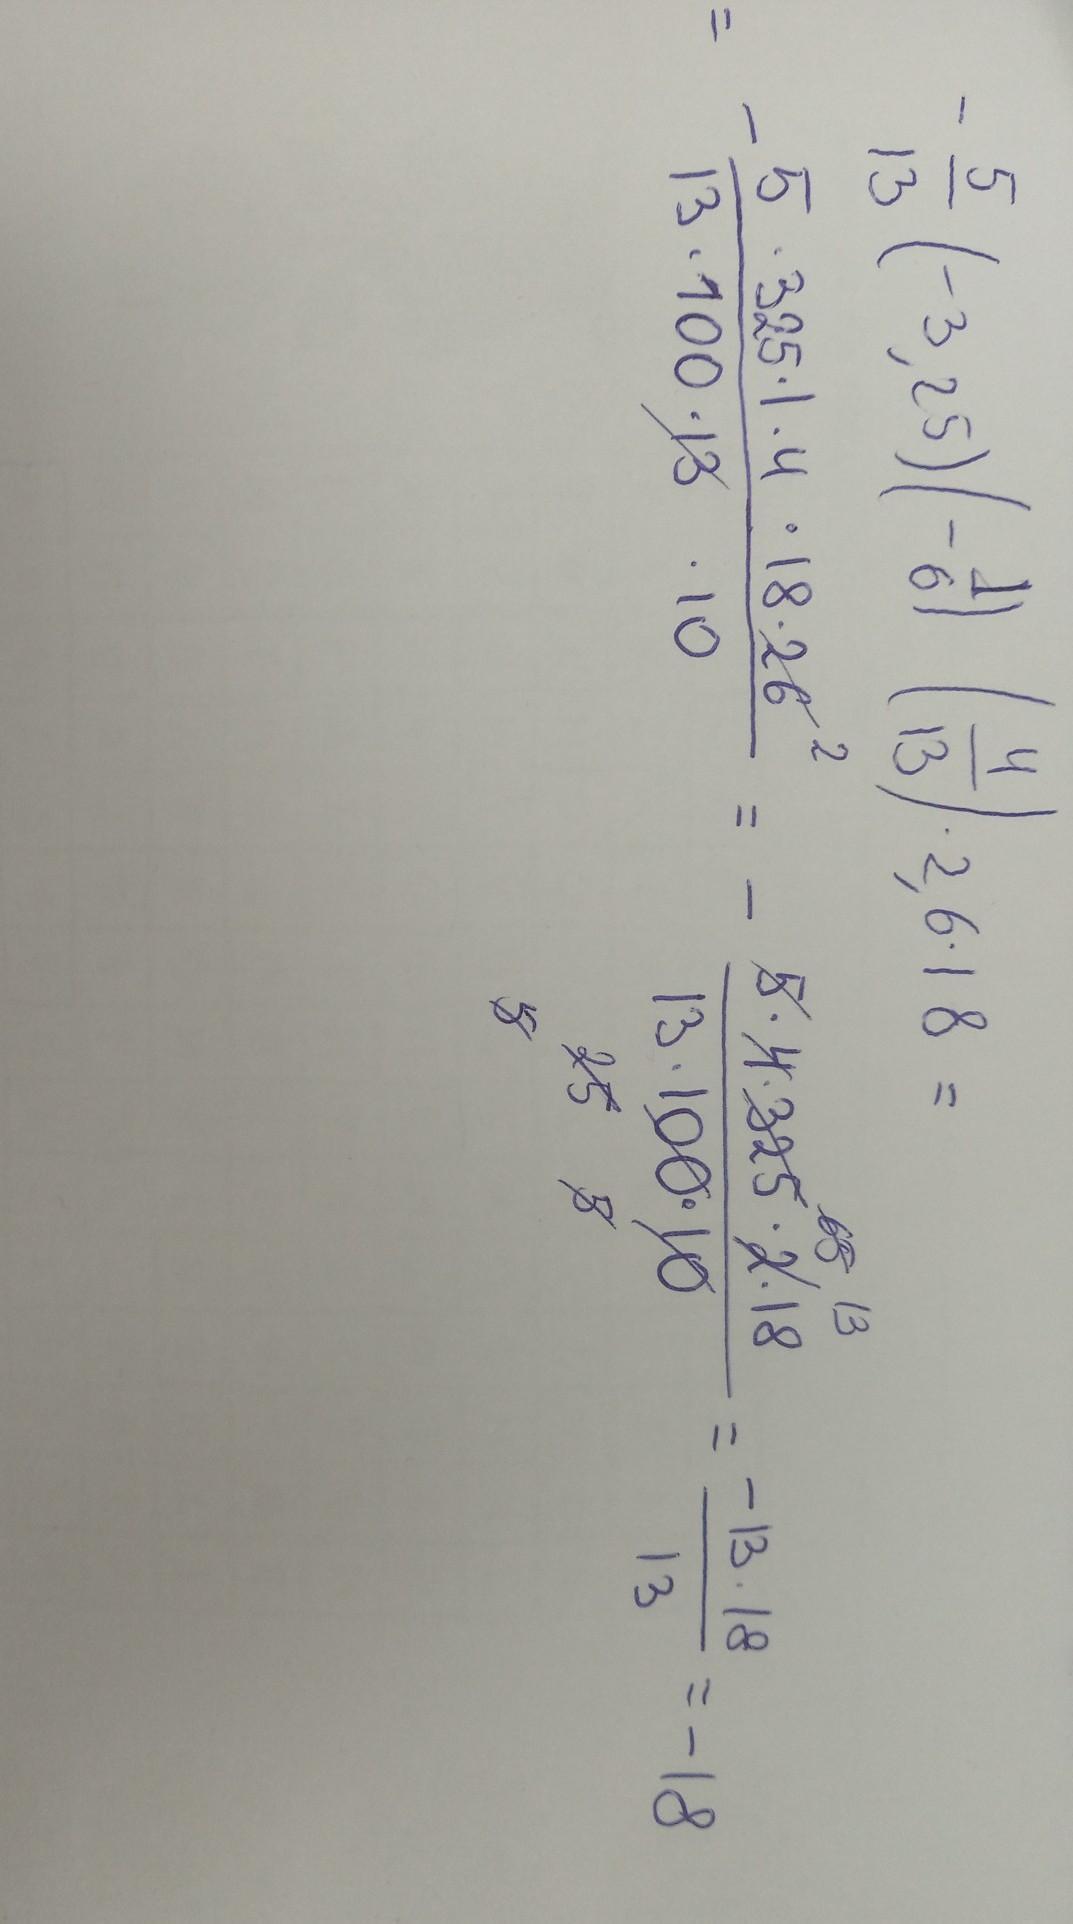 - 5/13 (-3,25) (-1/6) (4/13) · 2,6 · 18 =
= - (5 · 325 · 1 · 4 · 18 · 26 2)/(13 · 100 · 13 · 10) = - (5 · 4 · 325 65 13 · 2 · 18)/(13 · 100 · 10) = (-13 · 18)/13 = -18
25 5
5